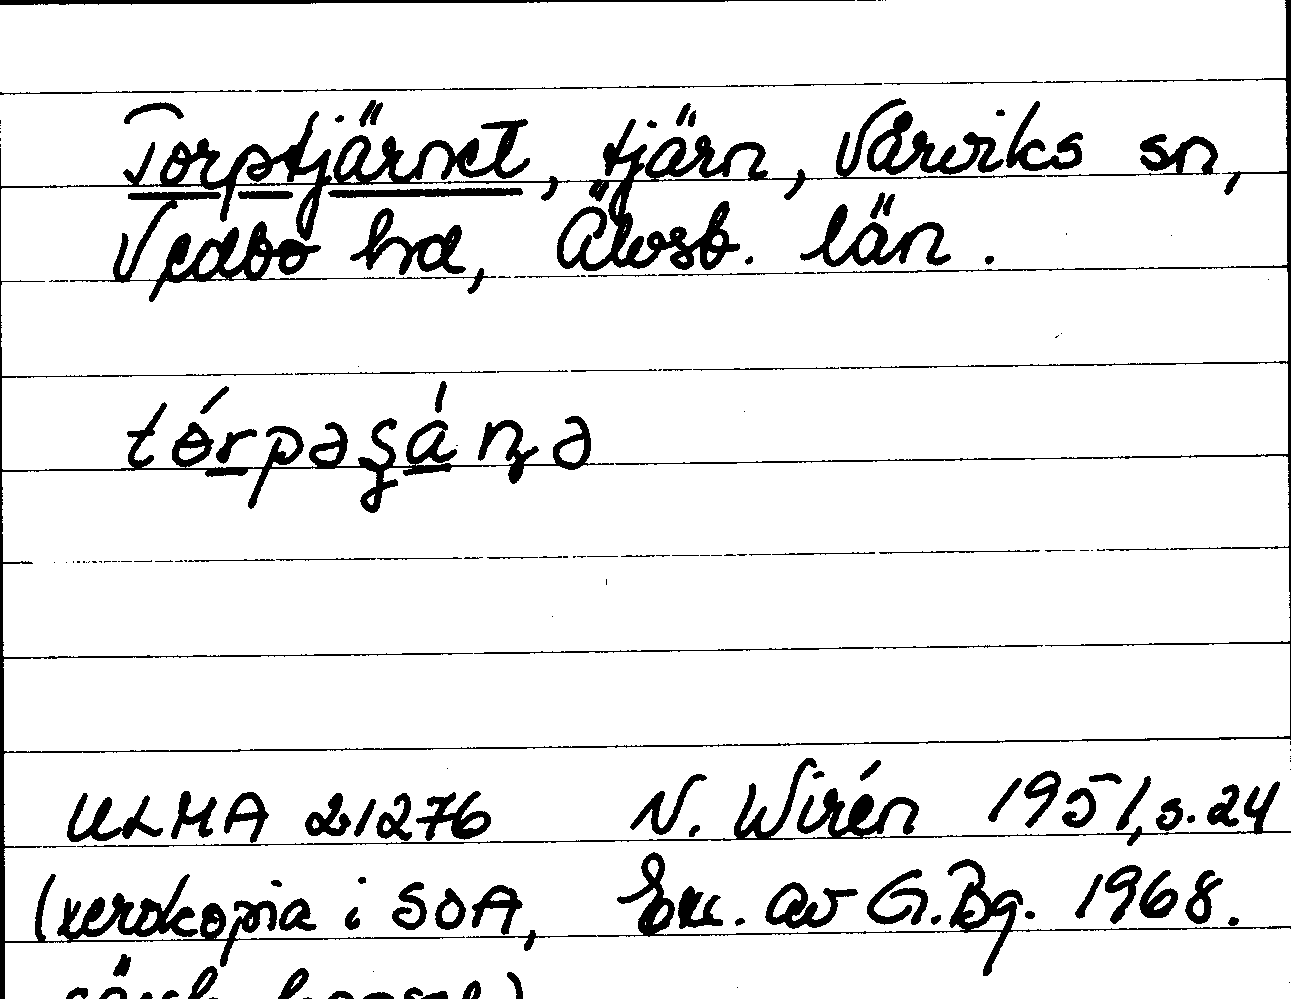 Torptjärnet, tjärn, Vårviks sn,
Vedbo hd, Älvsb. län.
tórpəʂánə
ULMA 21276 N. Wirén 1951, s. 24
(xerokopia i SOA, Exc. av G. Bg. 1968.
särsk. kapsel)